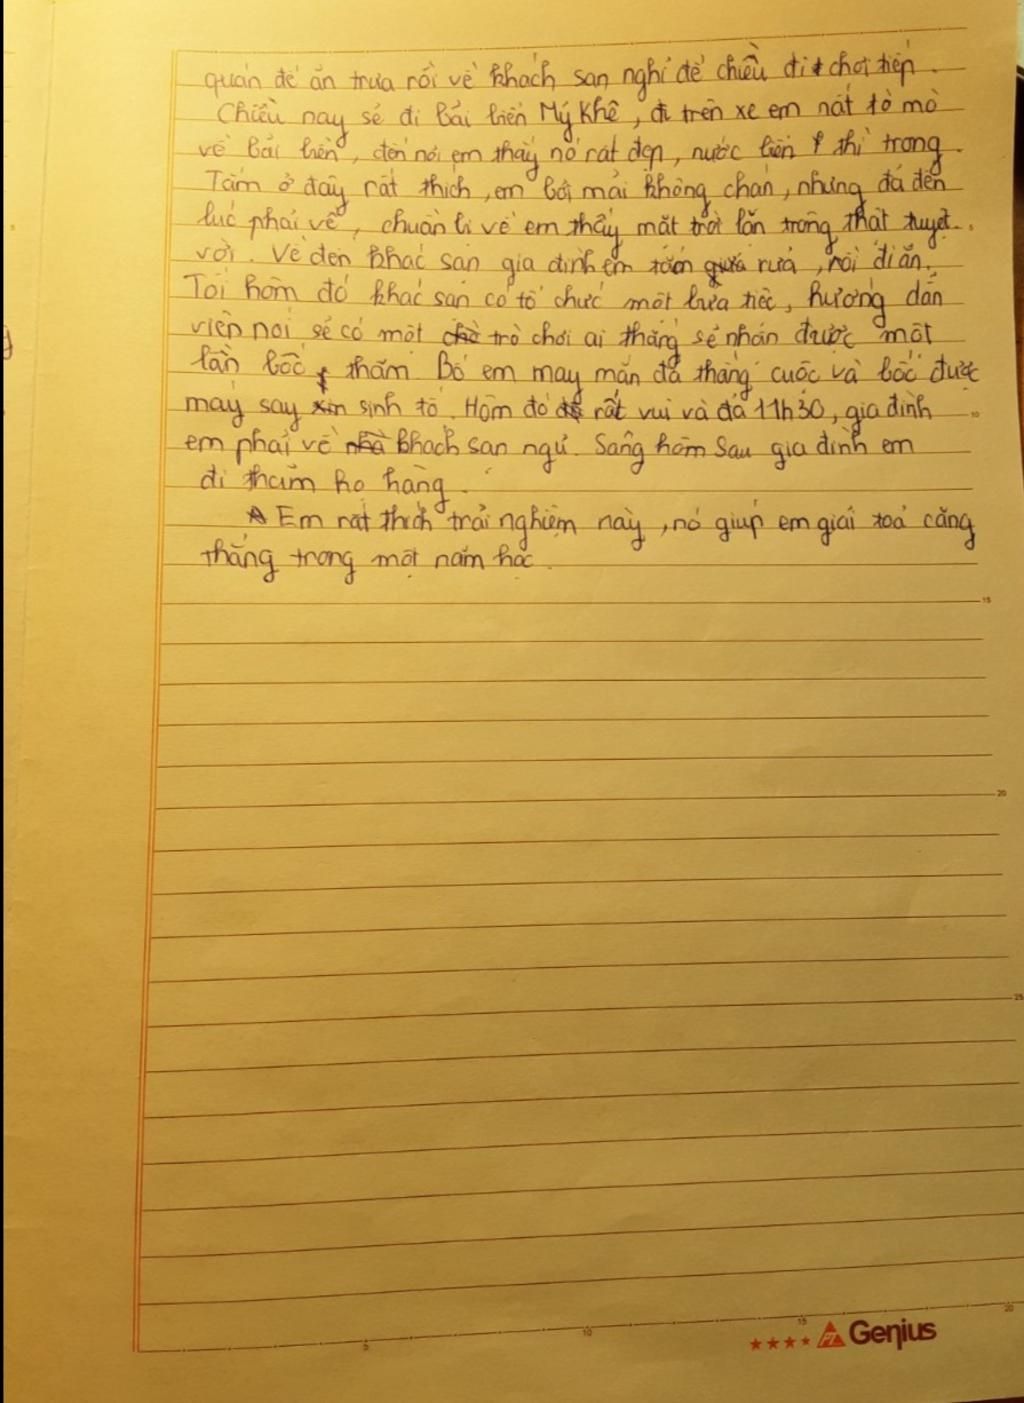 quán để ăn trưa rồi về khách sạn nghỉ để chiều đi chơi tiếp.
Chiều nay sẽ đi bãi biển Mỹ Khê, đi trên xe em rất tò mò
về bãi biển, đến nơi em thấy nó rất đẹp, nước biển thì trong.
Tắm ở đây rất thích, em bơi mãi không chán, nhưng đã đến
lúc phải về, chuẩn bị về em thấy mặt trời lặn trông thật tuyệt
vời. Về đến khác sạn gia đình em rửa, rồi đi ăn.
Tối hôm đó khác sạn có tổ chức một bữa tiệc, hướng dẫn
viên nói sẽ có một trò chơi ai thắng sẽ nhận được một
lần bốc thăm Bố em may mắn đã thắng cuộc và bốc được
máy say sinh tố. Hôm đó rất vui và đã 11h30, gia đình
em phải về khách sạn ngủ. Sáng hôm sau gia đình em
đi thăm họ hàng.
Em rất thích trải nghiệm này, nó giúp em giải toả căng
thẳng trong một năm học.
15
10
20
25
5
10
15
20
Genius